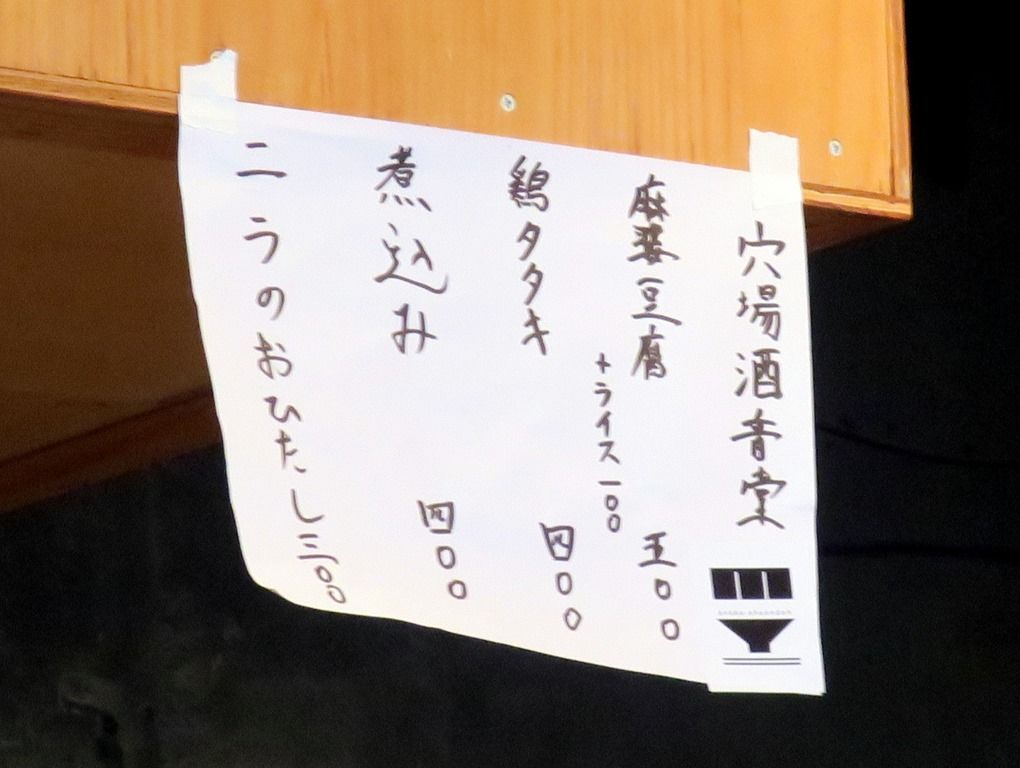 穴場酒音堂
麻婆豆腐 五〇〇
+ライス 一〇〇
鶏タタキ 四〇〇
煮込み 四〇〇
ニラのおひたし 三〇〇